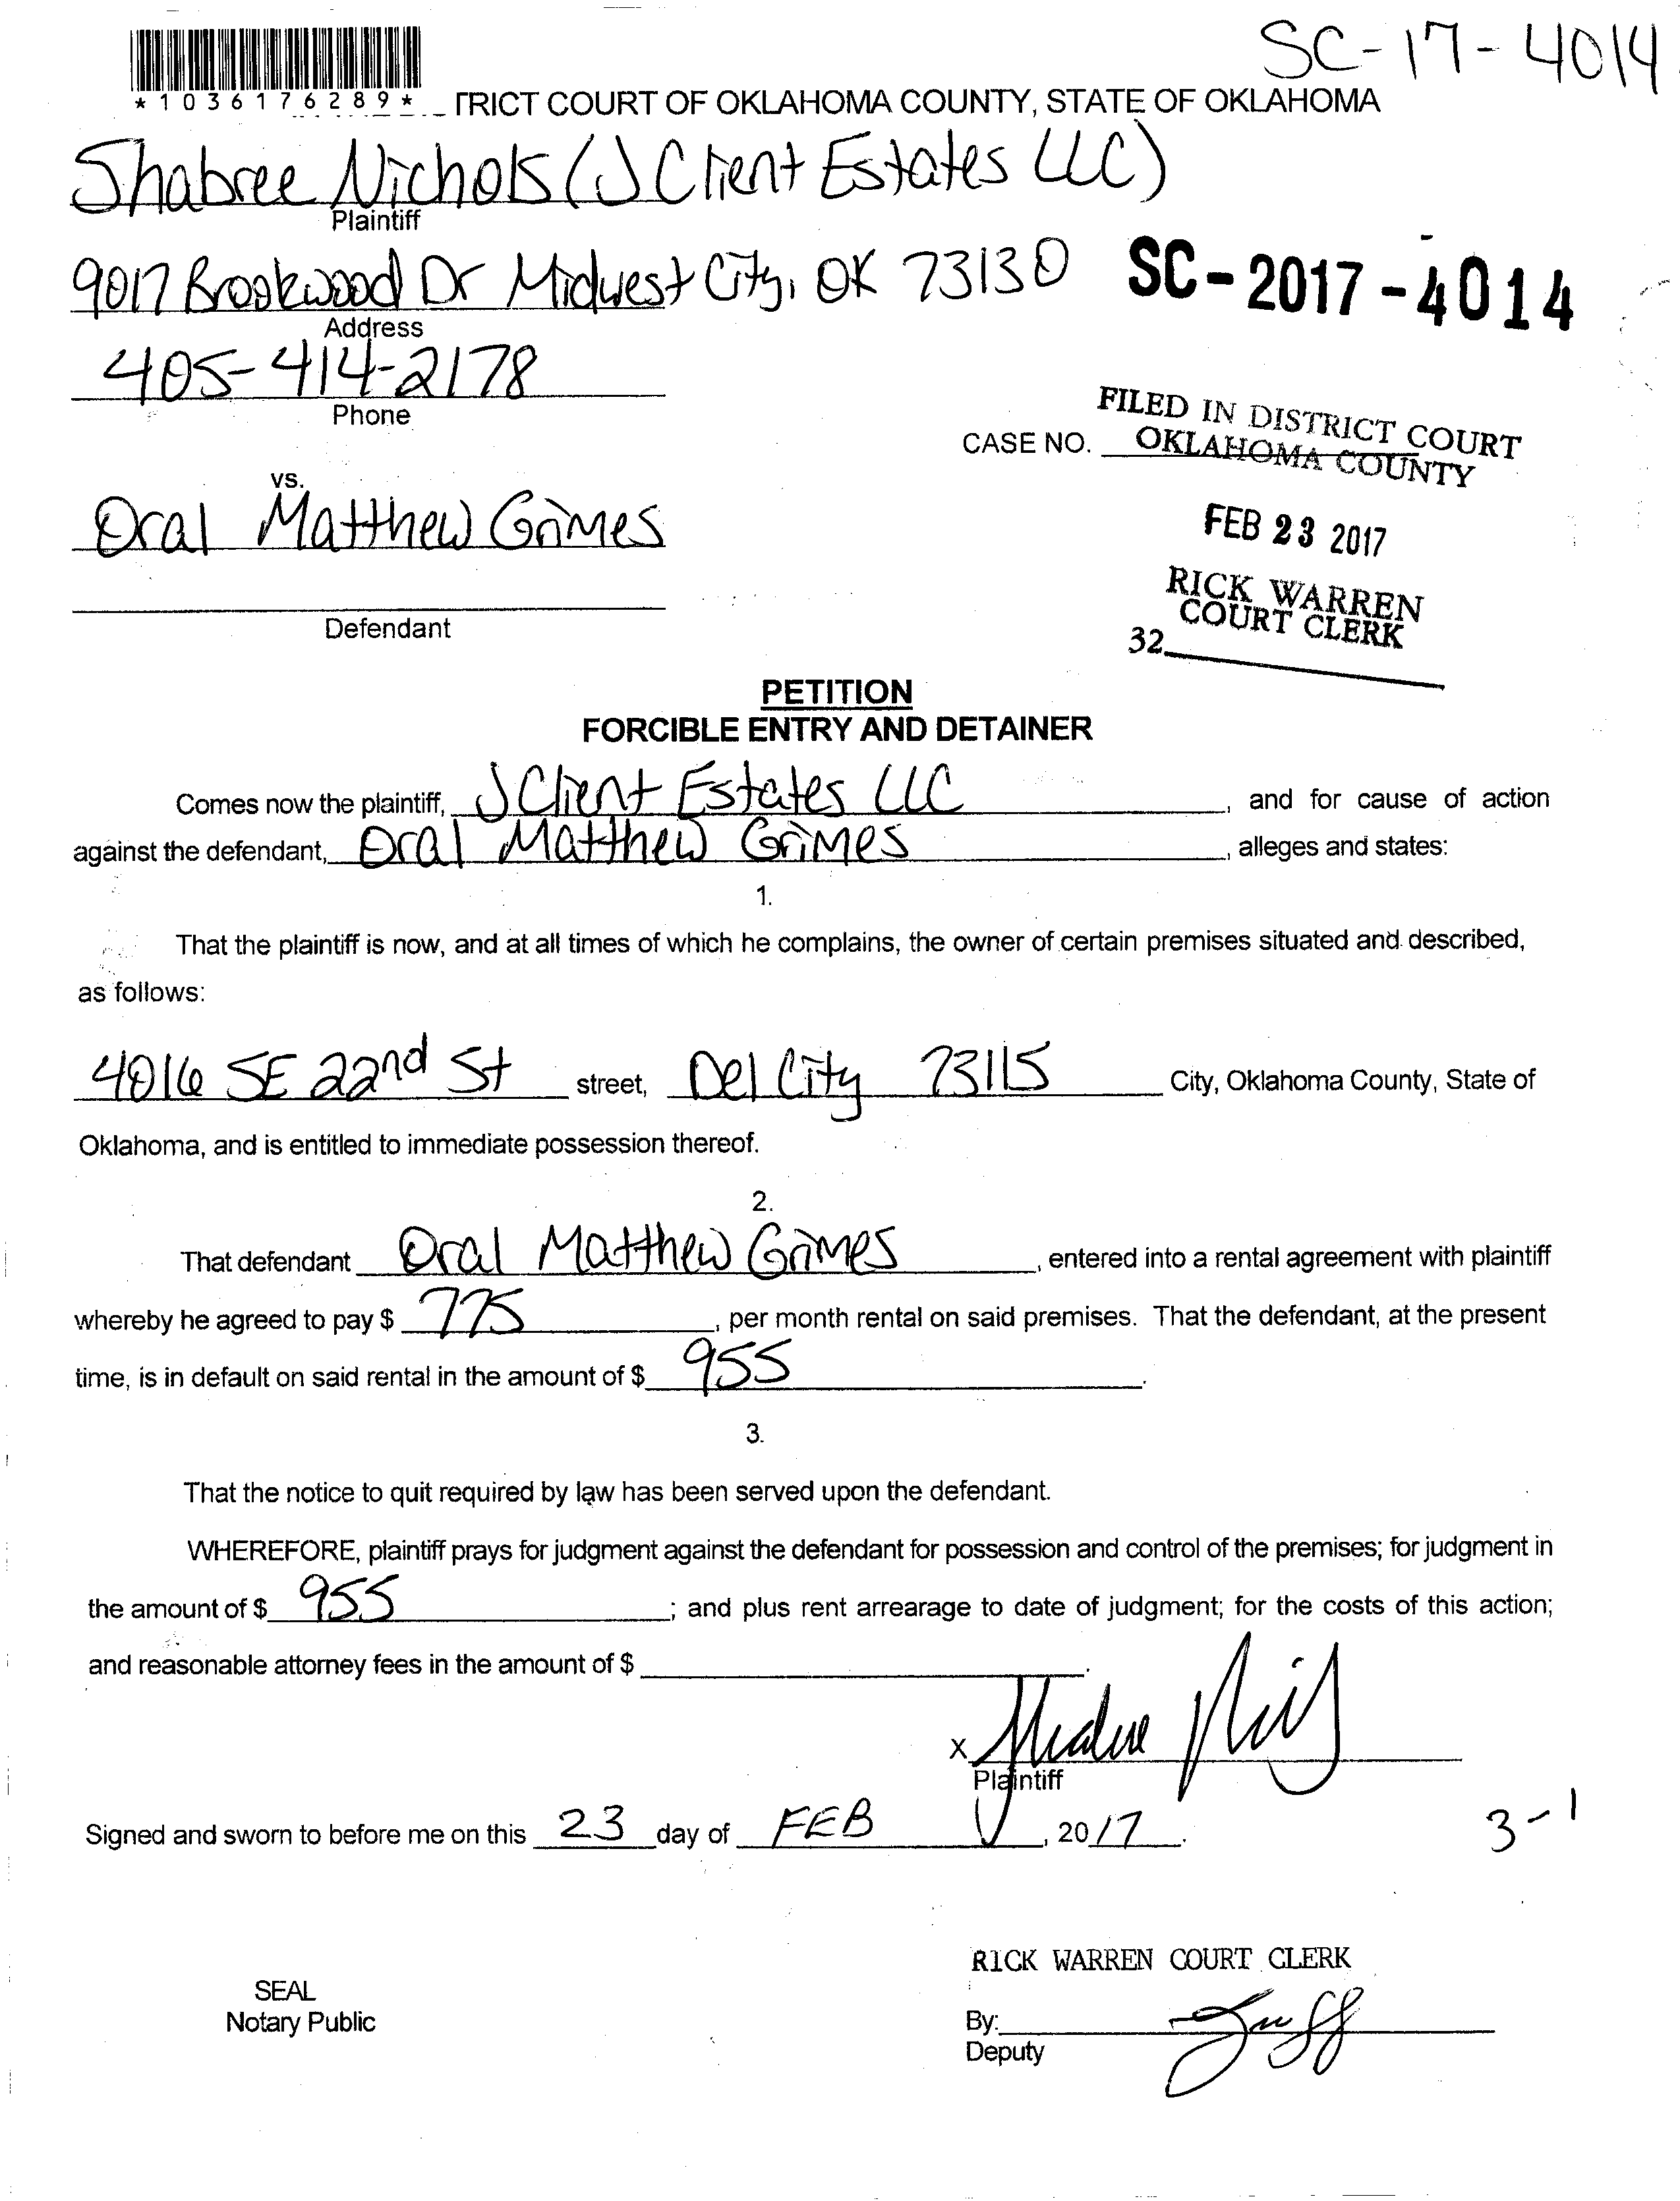 SC-17-4014
*1036176289*
TRICT COURT OF OKLAHOMA COUNTY, STATE OF OKLAHOMA
Shabree Nichols (J Client Estates LLC)
Plaintiff
9017 Brookwood Dr Midwest City, OK 73130
SC-2017-4014
Address
405-414-2178
Phone
FILED IN DISTRICT COURT
CASE NO. OKLAHOMA COUNTY
vs.
Oral Matthew Grimes
FEB 23 2017
RICK WARREN
COURT CLERK
Defendant
32
PETITION
FORCIBLE ENTRY AND DETAINER
Comes now the plaintiff, J Client Estates LLC, and for cause of action
against the defendant, Oral Matthew Grimes, alleges and states:
1.
That the plaintiff is now, and at all times of which he complains, the owner of certain premises situated and described,
as follows:
4016 SE 22nd St street, Del City 73115 City, Oklahoma County, State of
Oklahoma, and is entitled to immediate possession thereof.
2.
That defendant Oral Matthew Grimes, entered into a rental agreement with plaintiff
whereby he agreed to pay $ 775, per month rental on said premises. That the defendant, at the present
time, is in default on said rental in the amount of $ 955.
3.
That the notice to quit required by law has been served upon the defendant.
WHEREFORE, plaintiff prays for judgment against the defendant for possession and control of the premises; for judgment in
the amount of $ 955; and plus rent arrearage to date of judgment; for the costs of this action;
and reasonable attorney fees in the amount of $ .
X
Plaintiff
Signed and sworn to before me on this 23 day of FEB, 2017.
3-1
RICK WARREN COURT CLERK
SEAL
Notary Public
By:
Deputy